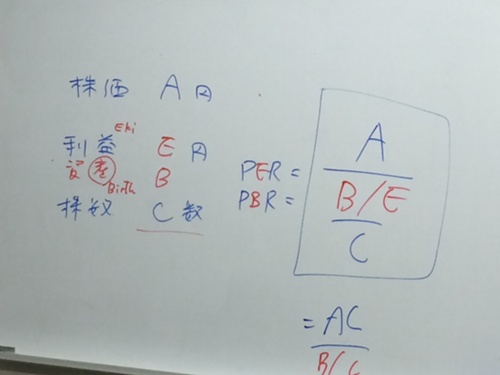 株価 A 円
Eki
利益 E 円
資産 B
Birth
株数 C 数
PER =
PBR =
A
B/E
C
= AC